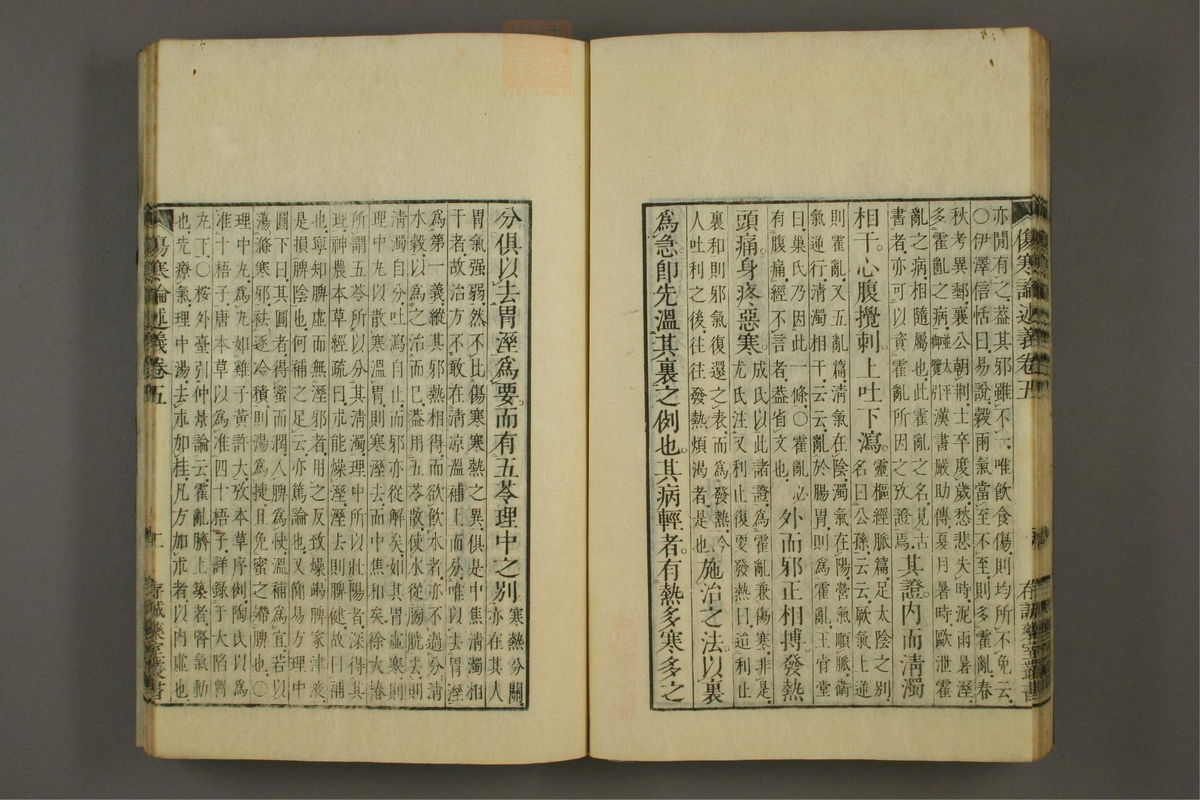 亦閒有之葢其邪雖不一唯飲食傷則均所不免云
〇伊澤信恬曰易說穀雨氣當至不至則多霍亂春
秋考異郵襄公朝荆士卒度歲愁悲失時泥雨暑溼
多霍亂之病太平御覽漢書嚴助傳夏月暑時歐泄霍
亂之病相隨屬也此霍亂之名見古
書者亦可以資霍亂所因之攷證焉其證內而清濁
相干心腹攪刺上吐下瀉靈樞經脈篇足太陰之別
名曰公孫云云厥氣上逆
則霍亂又五亂篇清氣在陰濁氣在陽營氣順脈衛
氣逆行清濁相干云云亂於腸胃則爲霍亂王肯堂
曰巢氏乃因此一條〇霍亂必
有腹痛經不言者葢省文也外而邪正相搏發熱
頭痛身疼惡寒成氏以此諸證爲霍亂兼傷寒非是
尤氏注又利止復更發熱曰逆利止
裏和則邪氣復還之表而爲發熱今
人吐利之後往往發熱煩渴者是也施治之法以裏
爲急卽先溫其裏之例也其病輕者有熱多寒多之
傷寒論述義卷五
存誠藥室叢書
分俱以去胃溼爲要而有五苓理中之別寒熱分關
亦在其人
胃氣强弱然不比傷寒寒熱之異俱是中焦清濁相
干者故治方不敢在清凉溫補上而分唯以去胃溼
爲第一義縱其邪熱相得而欲飲水者亦不過分清
水穀以爲之治而已葢用五苓散使水從膀胱去則
清濁自分吐瀉自止而邪亦從解矣如其胃虛寒則
理中丸以散寒溫胃則寒溼去而中焦和矣徐大椿
所謂五苓所以分其清濁理中所以壯陽者深得其
理神農本草經疏曰朮能燥溼溼去則脾健故曰補
也寧知脾虛而無溼邪者用之反致燥竭脾家津液
是損脾陰也何補之足云亦篤論也又簡易方理中
圓下曰其圓者得蜜而潤入脾爲快溫補爲宜若以
蕩滌寒邪祛逐冷積則湯爲捷且免蜜之滯脾也〇
理中丸爲丸如雞子黃許大攷本草序例陶氏以爲
准十梧子唐本草以爲准四十梧子詳錄于大陷胷
丸下〇桉外臺引仲景論云霍亂臍上築者腎氣動
也先療氣理中湯去朮加桂凡方加朮者以內虛也
傷寒論述義卷五
二
存誠藥室叢書